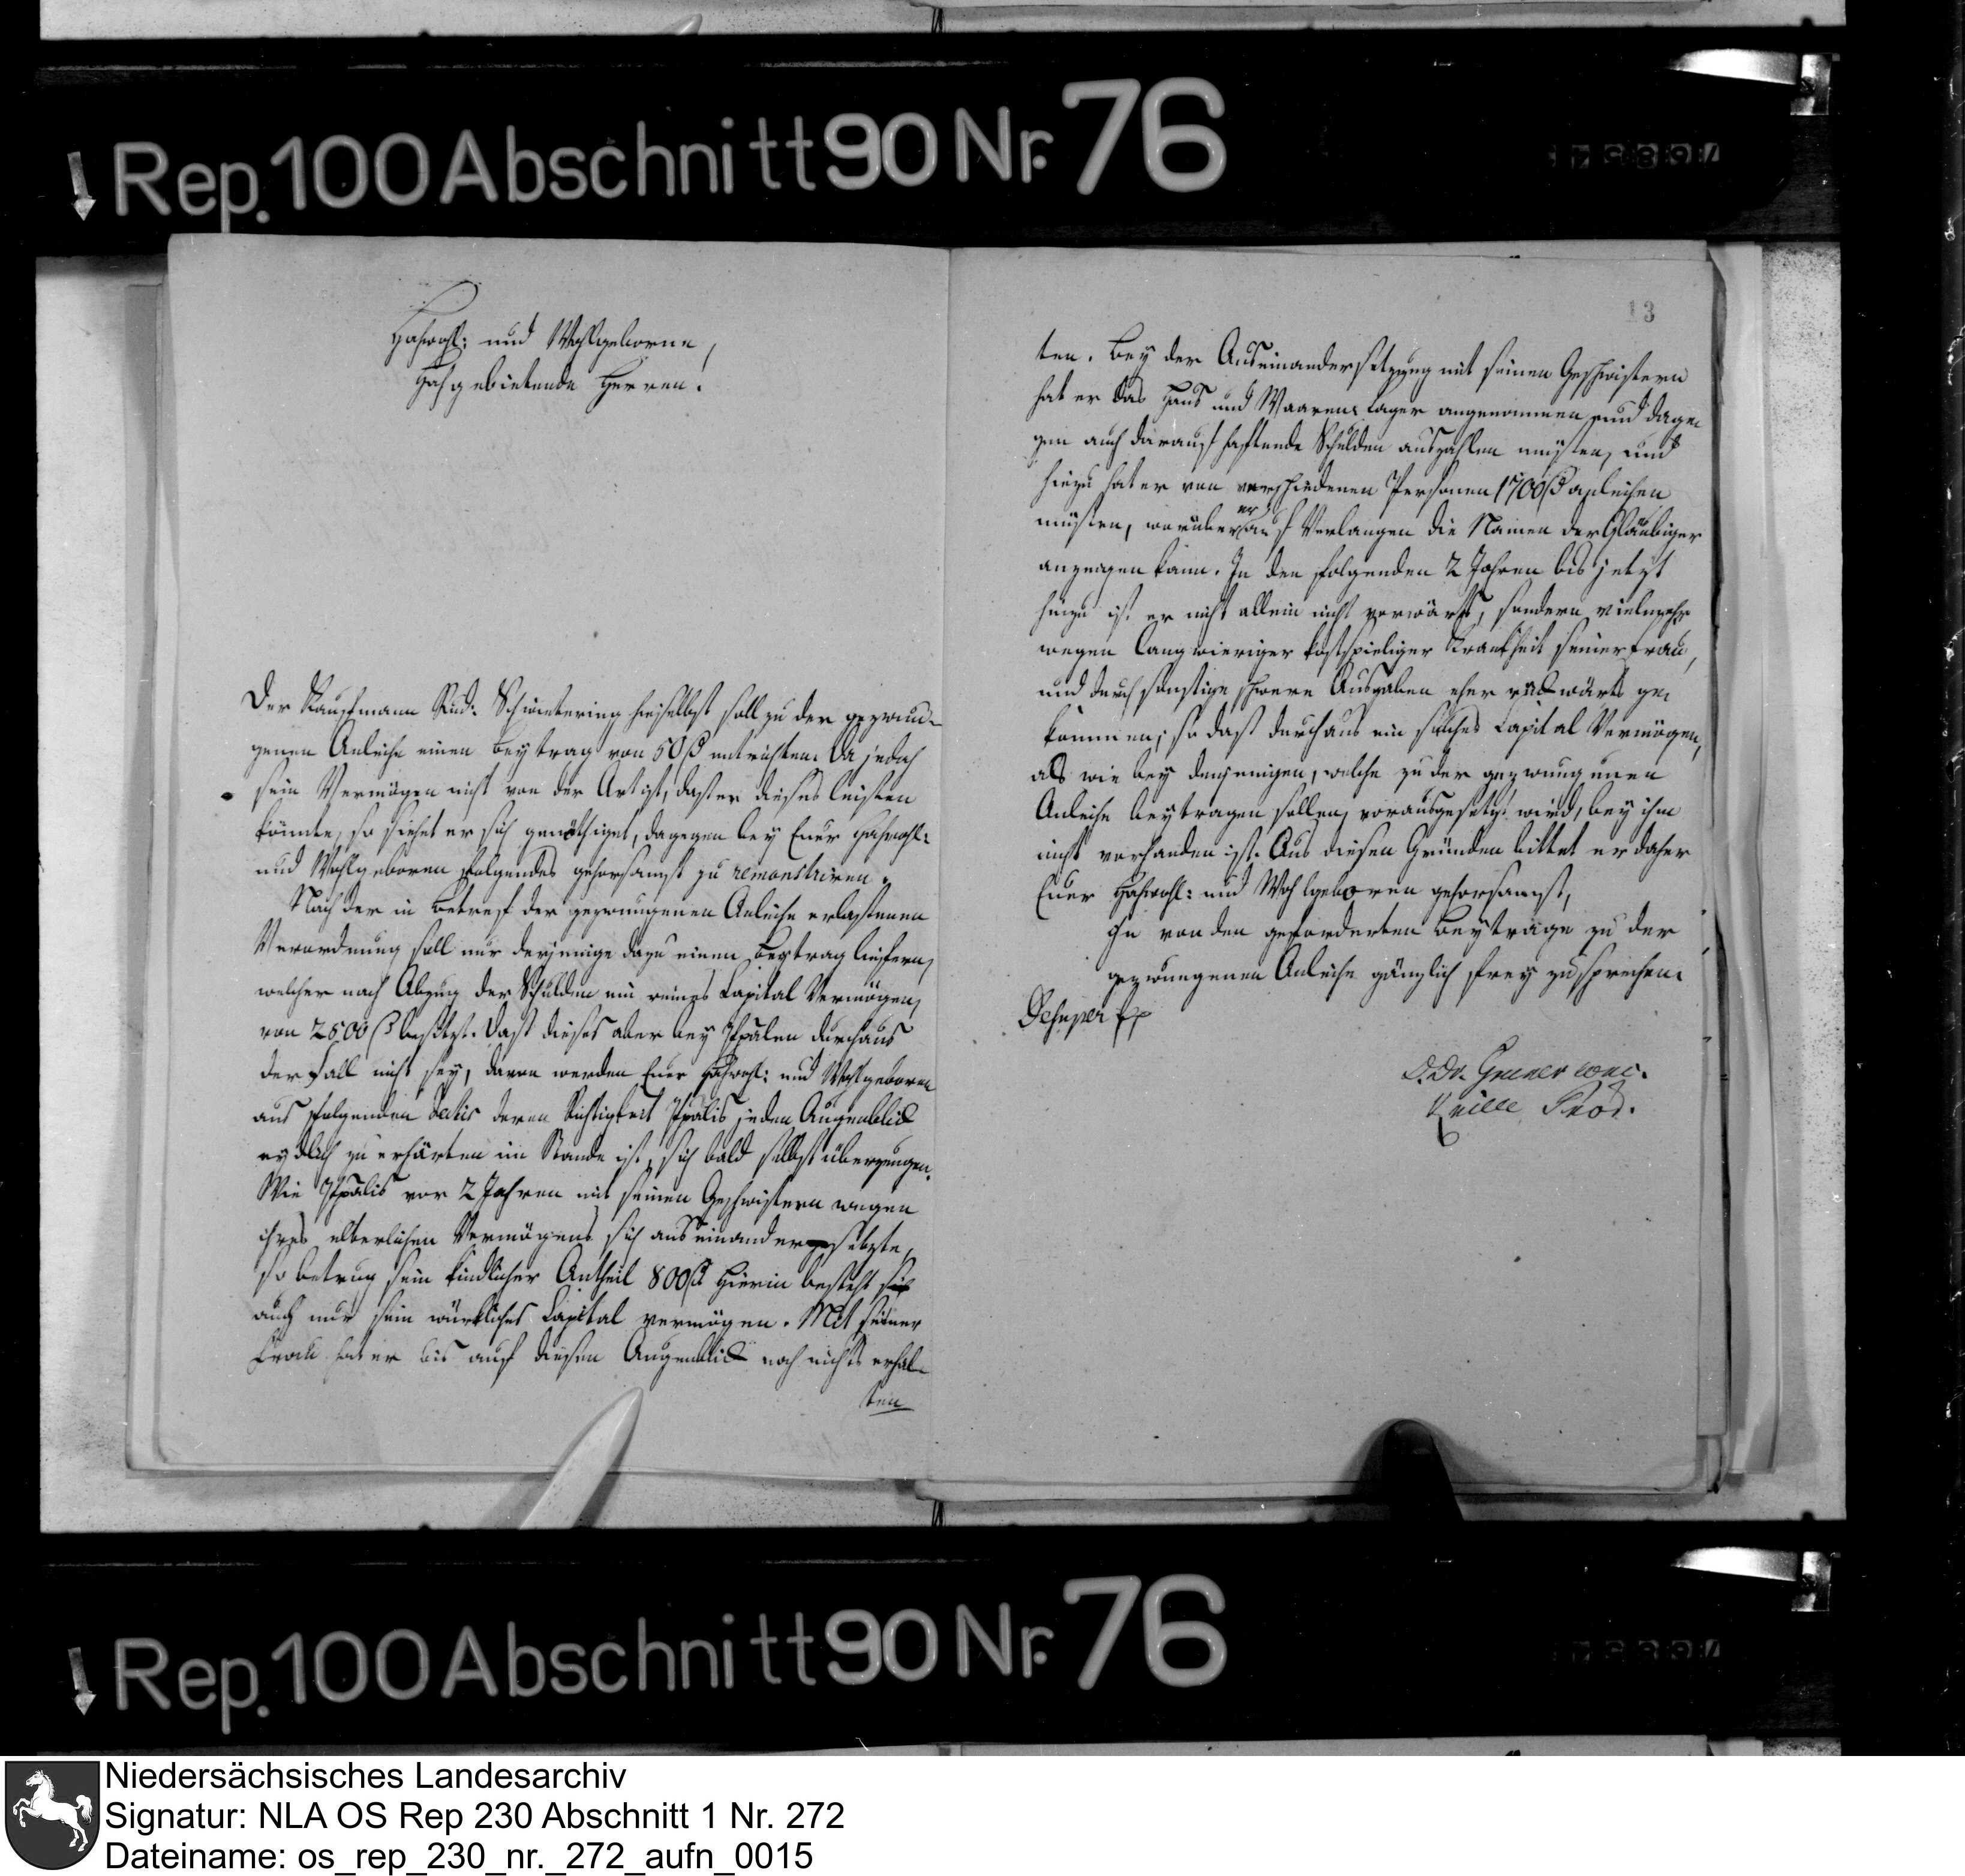 ↓ Rep. 100 Abschnitt 90 Nr. 76
Hochwohl: und Wohlgeborne,
Hochgebietende Herren!
Der Kaufmann Rud: Schwietering hieselbst soll zu der gezwun-
genen Anleihe einen Beytrag von 50 rt entrichten. Da jedoch
sein Vermögen nicht von der Art ist, daß er dieses leisten
könnte, so siehet er sich genöthiget, dagegen bey Euer Hochwohl:
und Wohlgeboren folgendes gehorsamst zu remonstriren.
Nach der in Betref der gezwungenen Anleihe erlassenen
Verordnung soll nur derjenige dazu einen Beytrag liefern,
welcher nach Abzug der Schulden ein reines Capital Vermögen,
von 2500 rt besitzt. Daß dieses aber bey Ppalen durchaus
der Fall nicht sey, davon werden Euer Hochwohl: und Wohlgeboren
aus folgenden datis deren Richtigkeit Ppalis jeden Augenblick
eydlich zu erhärten im Stande ist, sich bald selbst überzeugen.
Wie Ppalis vor 2 Jahren mit seinen Geschwistern wegen
ihres elterlichen Vermögens sich auseinandersetzte,
so betrug sein kindlicher Antheil 800 rt Hierin besteht
auch nur sein würkliches Capital vermögen. Mit seiner
Frau hat er bis auf diesen Augenblick noch nichts erhal-
ten
13
ten. Bey der Auseinandersetzung mit seinen Geschwistern
hat er das Haus und Waaren Lager angenommen und dage-
gen auch darauf haftende Schulden auszahlen müssen, und
hiezu hat er von verschiedenen Personen 1700 rt anleihen
müssen, worüber er auf Verlangen die Namen der Gläubiger
anzeigen kann. In den folgenden 2 Jahren bis jetzt
hiezu ist er nicht allein nicht vorwärts, sondern vielmehr
wegen langwieriger kostspieliger Krankheit seiner Frau,
und durch sonstige schwere Ausgaben eher rückwärts ge-
kommen; so daß durchaus ein solches Capital Vermögen,
als wie bey denjenigen, welche zu der gezwungenen
Anleihe beytragen sollen, vorausgesetzt wird, bey ihm
nicht vorhanden ist. Aus diesen Gründen bittet er daher
Euer Hochwohl: und Wohlgeboren gehorsamst,
Ihn von den geforderten Beytrage zu der
gezwungenen Anleihe gänzlich frey zu sprechen.
Desuper
D. Dr. Gruner conc.
Proc.
↓ Rep. 100 Abschnitt 90 Nr. 76
Niedersächsisches Landesarchiv
Signatur: NLA OS Rep 230 Abschnitt 1 Nr. 272
Dateiname: os_rep_230_nr._272_aufn_0015